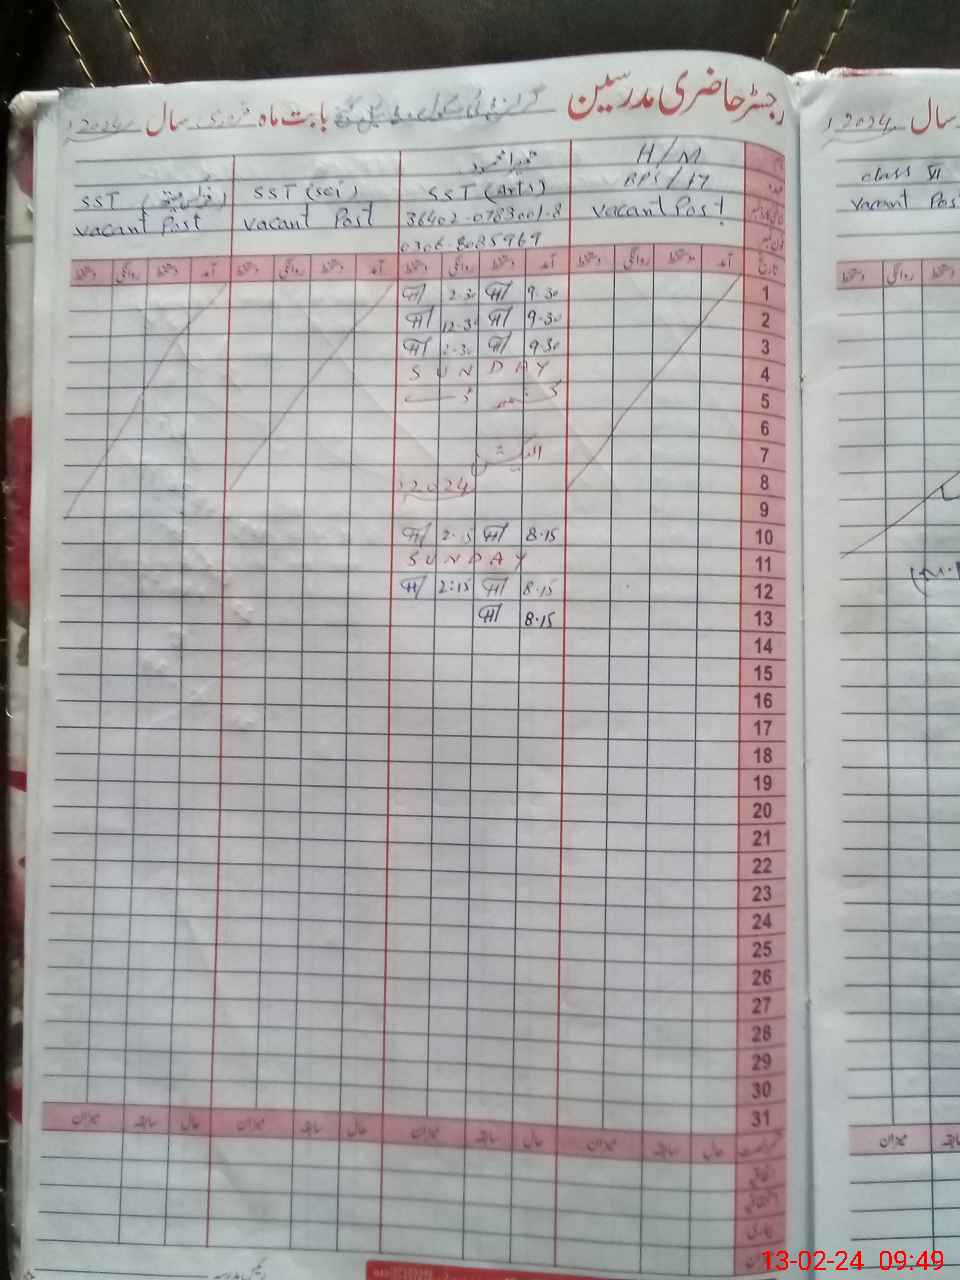 رجسٹر حاضری مدرسین
بابت ماہ فروری سال 2024ء
سال 2024ء
H/M
BPS/17
Vacant Post
حمیرا محمود
SST (Arts)
36402-0783001-8
0306-8085969
SST (Sci)
Vacant Post
SST
Vacant Post
class VI
Vacant Post
تاریخ آمد دستخط روانگی دستخط آمد دستخط روانگی دستخط آمد دستخط روانگی دستخط آمد دستخط روانگی دستخط
1 9.30 2.30
2 9.30 12.30
3 9.30 2.30
4 SUNDAY
5
6
7 الیکشن
8 2024ء
9
10 8.15 2.15
11 SUNDAY
12 8.15 2:15
13 8.15
14
15
16
17
18
19
20
21
22
23
24
25
26
27
28
29
30
31
رخصت حال سابقہ میزان حال سابقہ میزان حال سابقہ میزان حال سابقہ میزان
اتفاقیہ
بیماری
میزان
رئیس مدرسہ
13-02-24 09:49